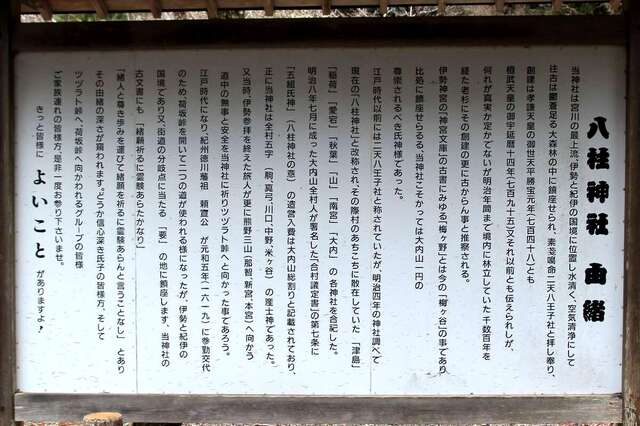 八柱神社 由緒
当神社は宮川の最上流、伊勢と紀伊の国境に位置し水清く、空気清浄にして
往古は闇蒼足る大森林の中に鎮座せられ、素戔嗚命二天八王子社と拝し奉り、
創建は孝謙天皇の御世天平勝宝元年(七百四十八)とも
桓武天皇の御宇延暦十四年(七百九十五)又それ以前とも伝えられしが、
何れが真実か定かでないが明治年間まで境内に林立していた千数百年を
経た老杉にその創建の更に古からん事と推察される。
伊勢神宮の(神宮文庫)の古書にみゆる「梅ヶ野」とは今の「栂ヶ谷」の事であり
比処に鎮座せらるる、当神社こそかっては大内山一円の
尊崇されるべき氏神様であった。
江戸時代以前には二天八王子社と称されていたが、明治四年の神社調べて
現在の「八柱神社」と改称され、その際村のあちこちに散在していた「津島」
「稲荷」「愛宕」「秋葉」「山」「南宮」「大内」の各神社を合記した。
明治八年七月に成った大内山全村人が署名した「合村議定書」の第七条に
「五組氏神」(八柱神社の意)の造営入費は大内山総割りと記載されており、
正に当神社は全村五字「駒、真弓、川口、中野、米ヶ谷」の産士神であった。
又当時、伊勢参拝を終えた旅人が更に熊野三山(那智、新宮、本宮)へ向かう
道中の無事と安全を当神社に祈りツヅラト峠へと向かった事であろう。
江戸時代になり、紀州徳川藩祖 頼宣公 が元和五年(一六一九)に参勤交代
のため、荷坂峠を開いて二つの道が使われる様になったが、伊勢と紀伊の
国境であり又、街道の分岐点に当たる「要」の地に鎮座します、当神社の
古文書にも(緒願祈るに霊験あらたかなり)
「緒人と尊き歩みを運びて緒願を祈るに霊験あらんと言うことなし」とあり
その由緒の深さが窺われます。どうか信心深き氏子の皆様方、そして
ツヅラト峠へ、荷坂峠へ向かわれるグループの皆様
ご家族連れの皆様方、是非一度お参り下さいませ。
きっと皆様に よいこと がありますよ!